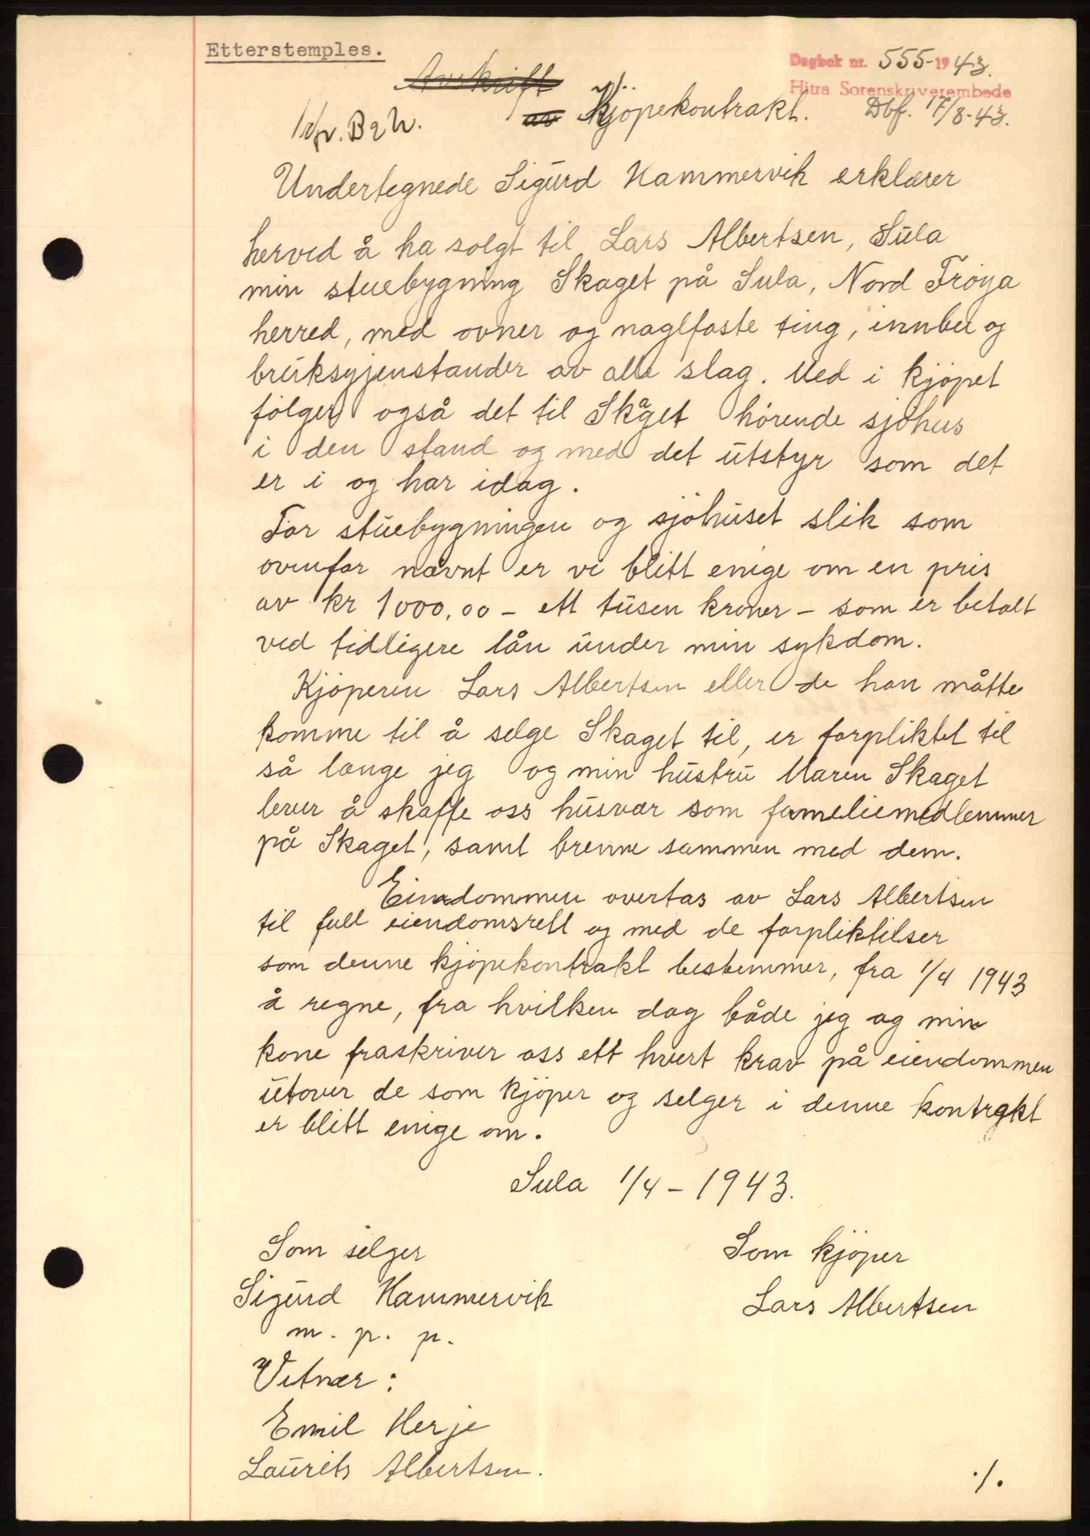 Etterstemples.
Dagbok nr. 555-1943.
Hitra Sorenskriverembede
Dbf. 17/8-43.
Avskrift
av Kjöpekontrakt.
Undertegnede Sigurd Hammervik erklærer
herved å ha solgt til Lars Albertsen, Sula
min stuebygning Skaget på Sula, Nord Fröya
herred, med ovner og naglfaste ting, innbu og
bruksgjenstander av alle slag. Med i kjöpet
fölger også det til Skaget hörende sjöhus
i den stand og med det utstyr som det
er i og har idag.
For stuebygningen og sjöhuset slik som
ovenfor nævnt er vi blitt enige om en pris
av kr 1000,00 - ett tusen kroner - som er betalt
ved tidligere lån under min sykdom.
Kjöperen Lars Albertsen eller de han måtte
komme til å selge Skaget til, er forpliktet til
så længe jeg og min hustru Maren Skaget
lever å skaffe oss husvær som fameliemedlemmer
på Skaget, samt brenne sammen med dem.
Eiendommen overtas av Lars Albertsen
til full eiendomsrett og med de forpliktelser
som denne kjöpekontrakt bestemmer, fra 1/4 1943
å regne, fra hvilken dag både jeg og min
kone fraskriver oss ett hvert krav på eiendommen
utover de som kjöper og selger i denne kontrakt
er blitt enige om.
Sula 1/4 - 1943.
Som selger
Som kjöper
Sigurd Hammervik
Lars Albertsen
m. p. p.
Vitner:
Emil Herje
Laurits Albertsen.
./.